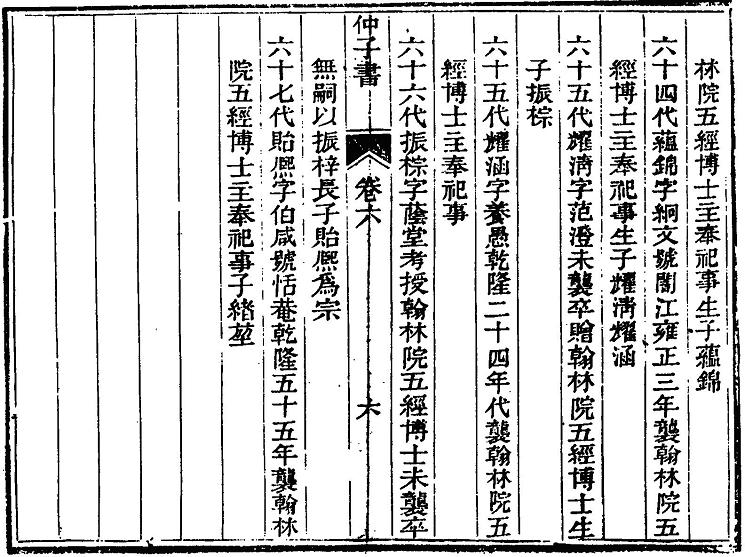 林院五經博士主奉祀事生子蘊錦
六十四代蘊錦字絅文號闇江雍正三年襲翰林院五
經博士主奉祀事生子耀淸耀涵
六十五代耀淸字范澄未襲卒贈翰林院五經博士生
子振棕
六十五代耀涵字養愚乾隆二十四年代襲翰林院五
經博士主奉祀事
六十六代振棕字蔭堂考授翰林院五經博士未襲卒
仲子書
卷六
六
無嗣以振梓長子貽熈爲宗
六十七代貽熈字伯咸號恬菴乾隆五十五年襲翰林
院五經博士主奉祀事子緖堃